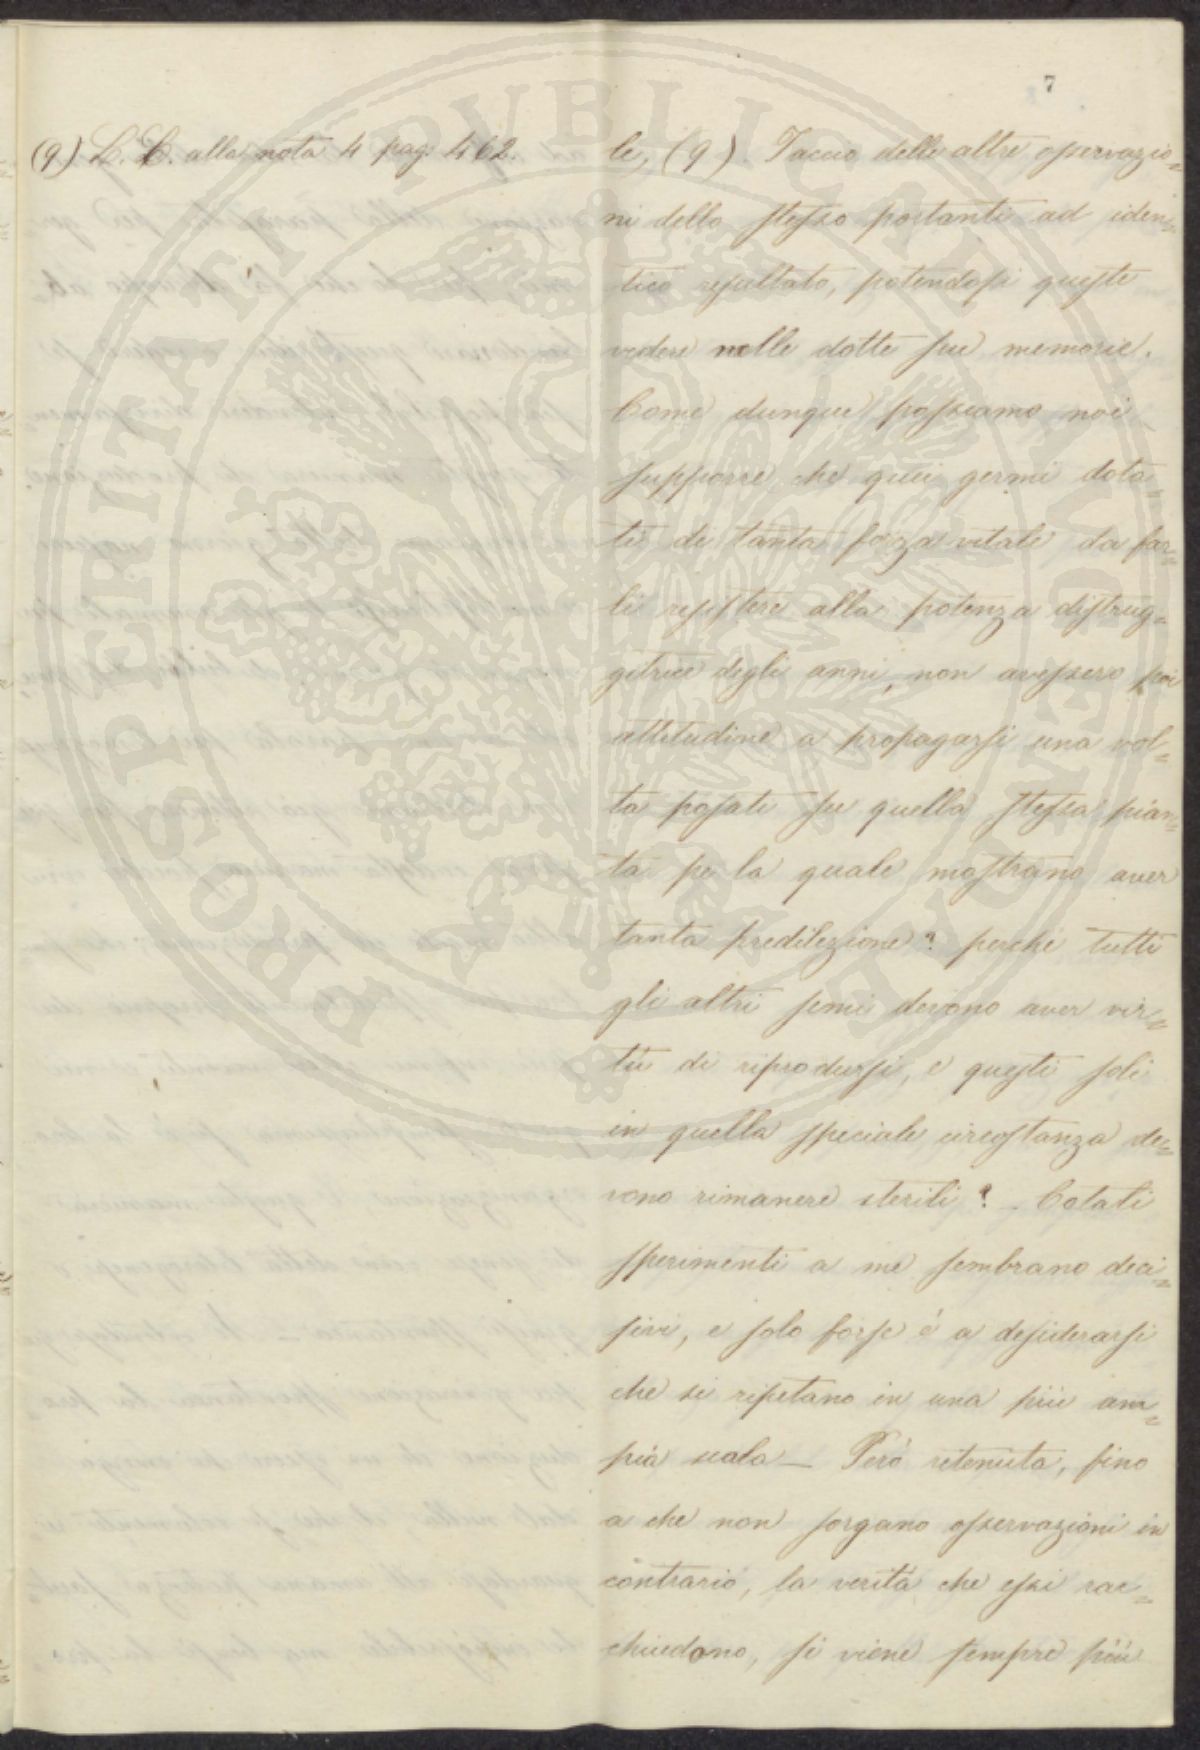 7
(9) L. C. alla nota 4 pag. 462.
le, (9). Taccio delle altre osservazio=
ni dello stesso portanti ad iden=
tico resultato, potendosi queste
vedere nelle dotte sue memorie.
Come dunque possiamo noi
supporre che quei germi dota=
ti di tanta forza vitale da far=
li resistere alla potenza distrug=
gitrice degli anni, non avessero poi
attitudine a propagarsi una vol=
ta posati su quella stessa pian=
ta per la quale mostrano aver
tanta predilezione? perche tutti
gli altri semi devono aver vir=
tù di riprodursi, e questi soli
in quella speciale circostanza de=
vono rimanere sterili? - Cotali
sperimenti a me sembrano deci=
sivi, e solo forse è a desiderarsi
che si ripetano in una più am=
pia scala — Però ritenuta, fino
a che non sorgano osservazioni in
contrario, la verità che essi rac=
chiudono, si viene sempre più
PROSPERITATI PVBLICAE AVGENDAE